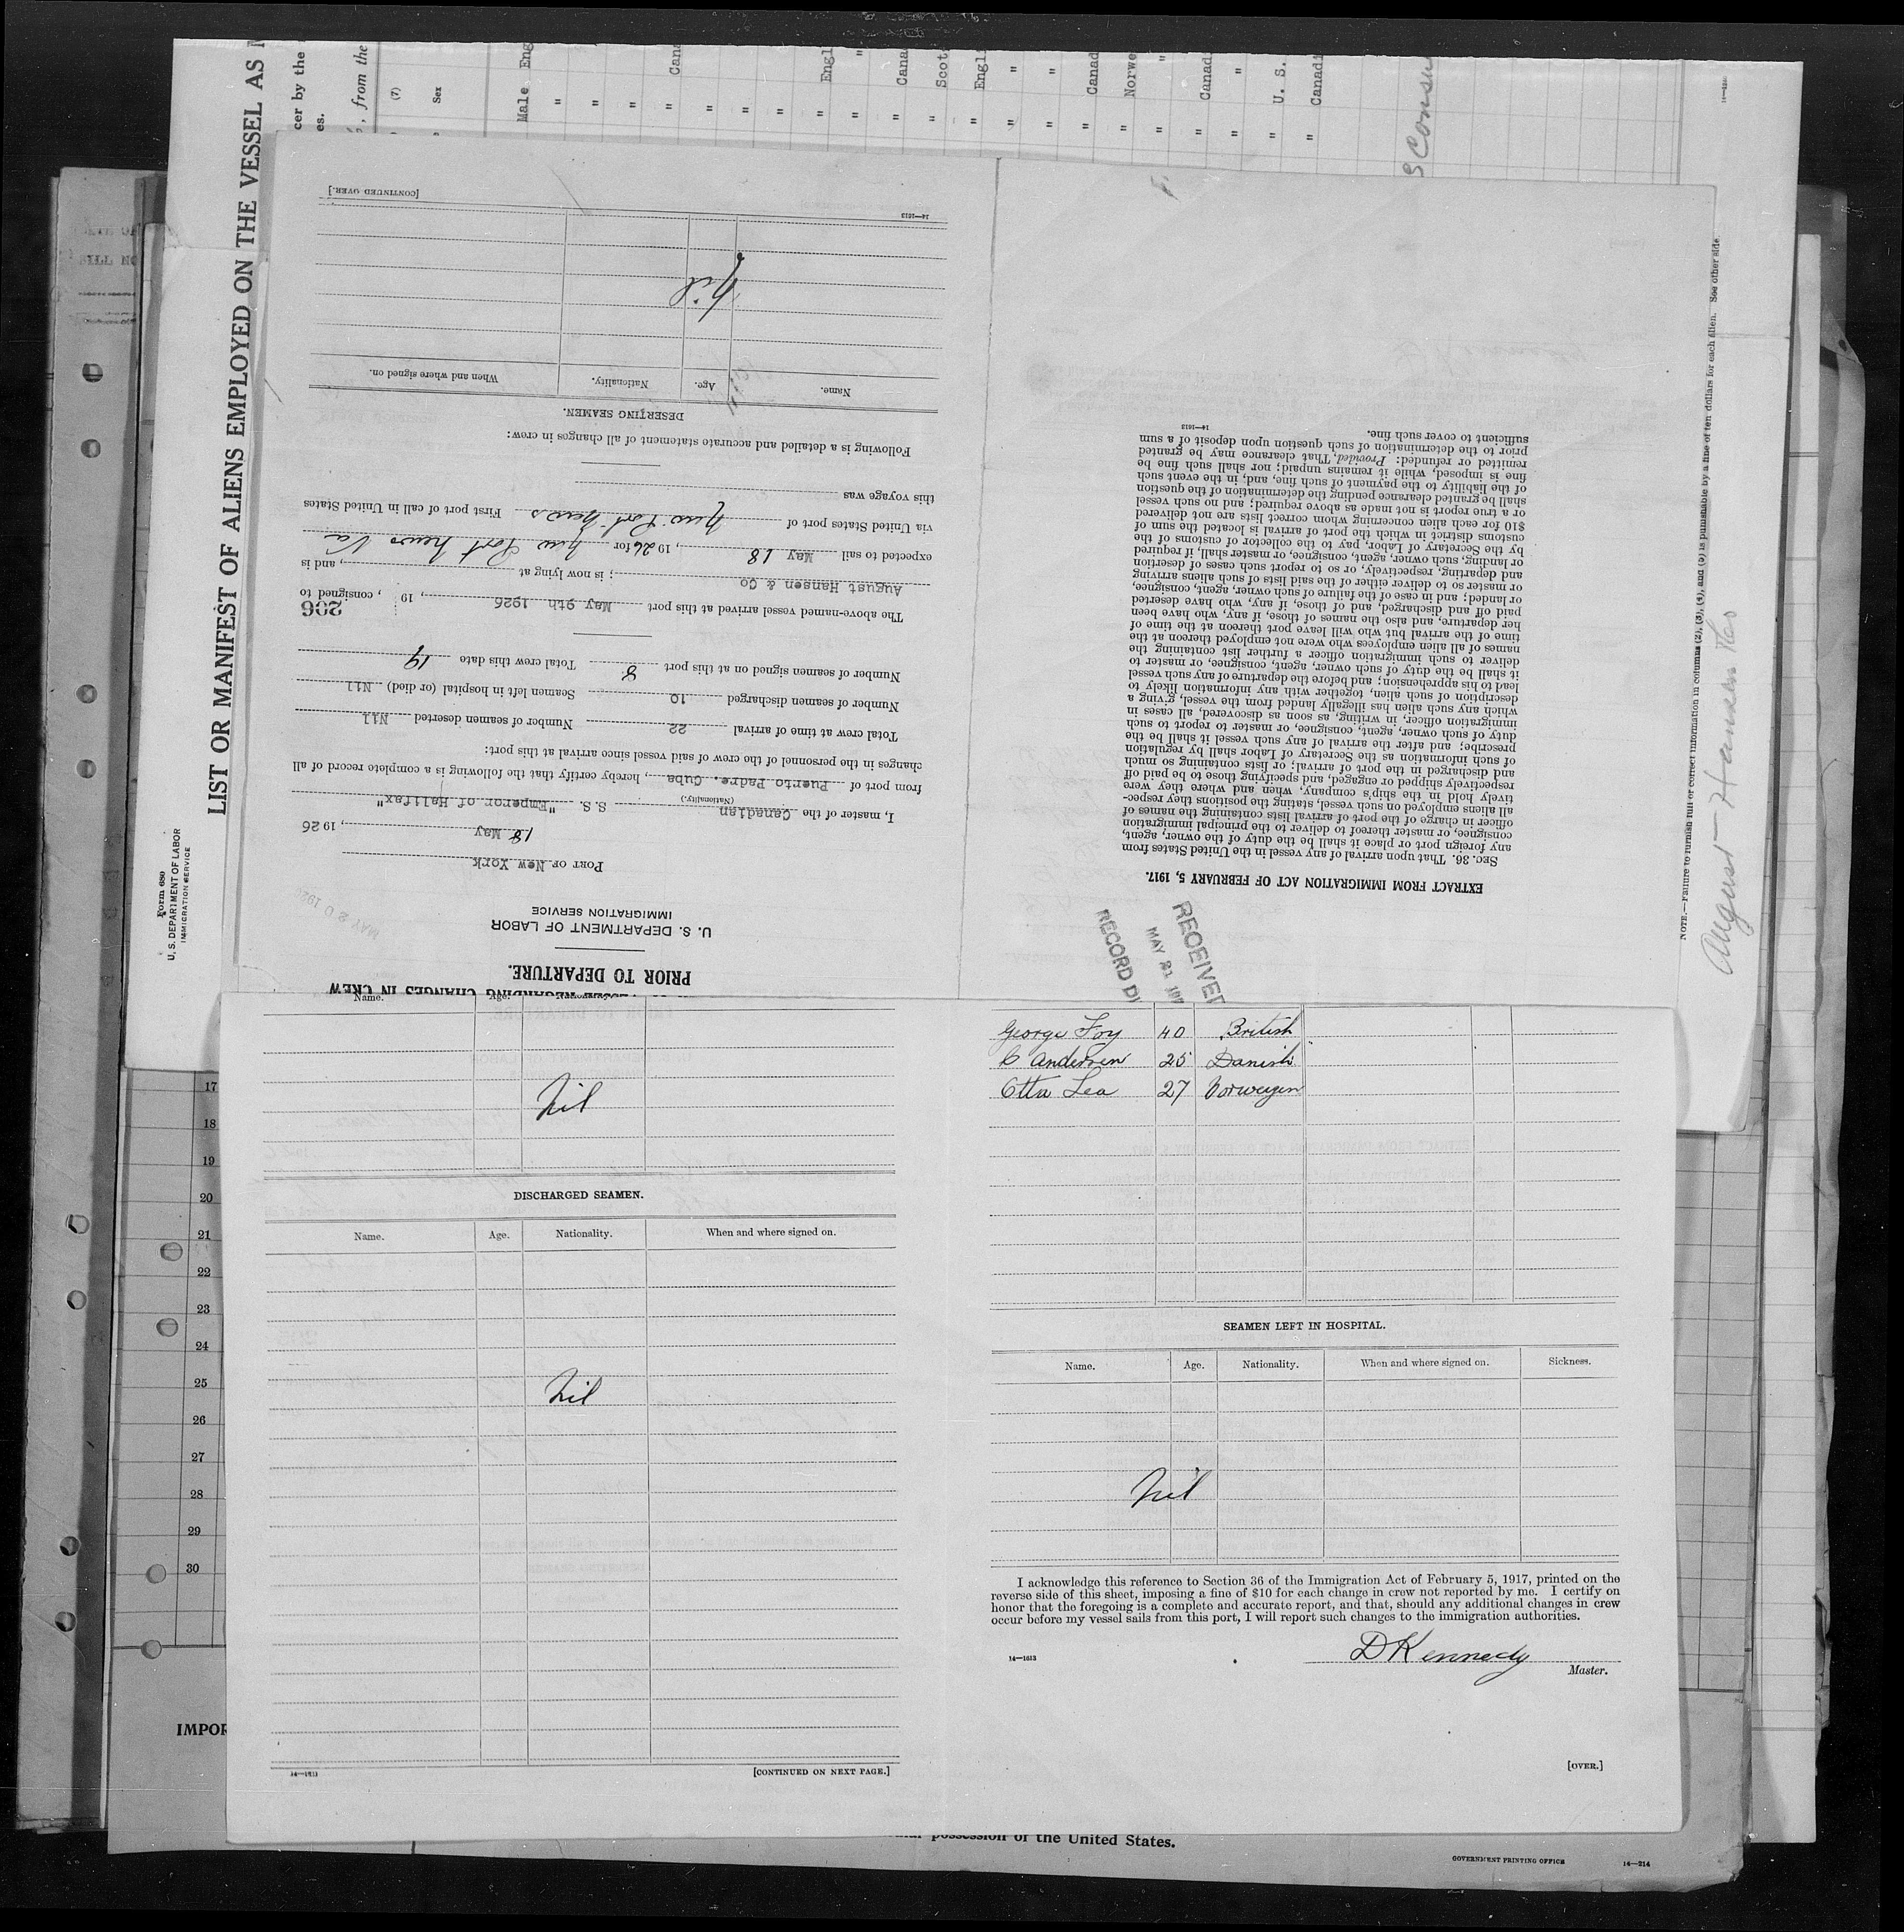 LIST OR MANIFEST OF ALIENS EMPLOYED ON THE VESSEL AS
Form 680
U. S. DEPARTMENT OF LABOR
IMMIGRATION SERVICE
cer by the
es.
, from the
(7)
Sex
Male Eng
Cana
Engl
Cana
Scot
Engl
Canad
Norwe
Canad
U. S.
Canadi
NOTE.—Failure to furnish full or correct information in columns (2), (3), (4), and (5) is punishable by a fine of ten dollars for each alien. See other side.
August Hansen
REGARDING CHANGES IN CREW
PRIOR TO DEPARTURE.
U. S. DEPARTMENT OF LABOR
IMMIGRATION SERVICE
MAY 20 192
PORT OF New York
18 May, 1926
I, master of the Canadian S.S. "Emperor of Halifax"
(Nationality.)
from port of Puerto Padre. Cuba, hereby certify that the following is a complete record of all
changes in the personnel of the crew of said vessel since arrival at this port:
Total crew at time of arrival 22 Number of seamen deserted Nil
Number of seamen discharged 10 Seamen left in hospital (or died) Nil
Number of seamen signed on at this port 8 Total crew this date 19
The above-named vessel arrived at this port May 9th 1926, 19 , consigned to
206
August Hansen & Co ; is now lying at , and is
expected to sail May 18, 1926 for New Port News Va
via United States port of New Port News First port of call in United States
this voyage was
Following is a detailed and accurate statement of all changes in crew:
DESERTING SEAMEN.
Name. Age. Nationality. When and where signed on.
Nil
14—1613
[CONTINUED OVER.]
RECEIVED
MAY 21 192
RECORD DI
EXTRACT FROM IMMIGRATION ACT OF FEBRUARY 5, 1917.
SEC. 36. That upon arrival of any vessel in the United States from
any foreign port or place it shall be the duty of the owner, agent,
consignee, or master thereof to deliver to the principal immigration
officer in charge of the port of arrival lists containing the names of
all aliens employed on such vessel, stating the positions they respec-
tively hold in the ship's company, when and where they were
respectively shipped or engaged, and specifying those to be paid off
and discharged in the port of arrival; or lists containing so much
of such information as the Secretary of Labor shall by regulation
prescribe; and after the arrival of any such vessel it shall be the
duty of such owner, agent, consignee, or master to report to such
immigration officer, in writing, as soon as discovered, all cases in
which any such alien has illegally landed from the vessel, giving a
description of such alien, together with any information likely to
lead to his apprehension; and before the departure of any such vessel
it shall be the duty of such owner, agent, consignee, or master to
deliver to such immigration officer a further list containing the
names of all alien employees who were not employed thereon at the
time of the arrival but who will leave port thereon at the time of
her departure, and also the names of those, if any, who have been
paid off and discharged, and of those, if any, who have deserted
or landed; and in case of the failure of such owner, agent, consignee,
or master so to deliver either of the said lists of such aliens arriving
and departing, respectively, or so to report such cases of desertion
or landing, such owner, agent, consignee, or master shall, if required
by the Secretary of Labor, pay to the collector of customs of the
customs district in which the port of arrival is located the sum of
$10 for each alien concerning whom correct lists are not delivered
or a true report is not made as above required; and no such vessel
shall be granted clearance pending the determination of the question
of the liability to the payment of such fine, and, in the event such
fine is imposed, while it remains unpaid; nor shall such fine be
remitted or refunded: Provided, That clearance may be granted
prior to the determination of such question upon deposit of a sum
sufficient to cover such fine.
14—1613
Name. Age.
Nil
DISCHARGED SEAMEN.
Name. Age. Nationality. When and where signed on.
Nil
[CONTINUED ON NEXT PAGE.]
George Foy 40 British
C Andersen 25 Danish
Otto Lea 27 Norwegen
SEAMEN LEFT IN HOSPITAL.
Name. Age. Nationality. When and where signed on. Sickness.
Nil
I acknowledge this reference to Section 36 of the Immigration Act of February 5, 1917, printed on the
reverse side of this sheet, imposing a fine of $10 for each change in crew not reported by me. I certify on
honor that the foregoing is a complete and accurate report, and that, should any additional changes in crew
occur before my vessel sails from this port, I will report such changes to the immigration authorities.
D Kennedy
Master.
14—1613
[OVER.]
17
18
19
20
21
22
23
24
25
26
27
28
29
30
IMPOR
possession of the United States.
GOVERNMENT PRINTING OFFICE
14—214